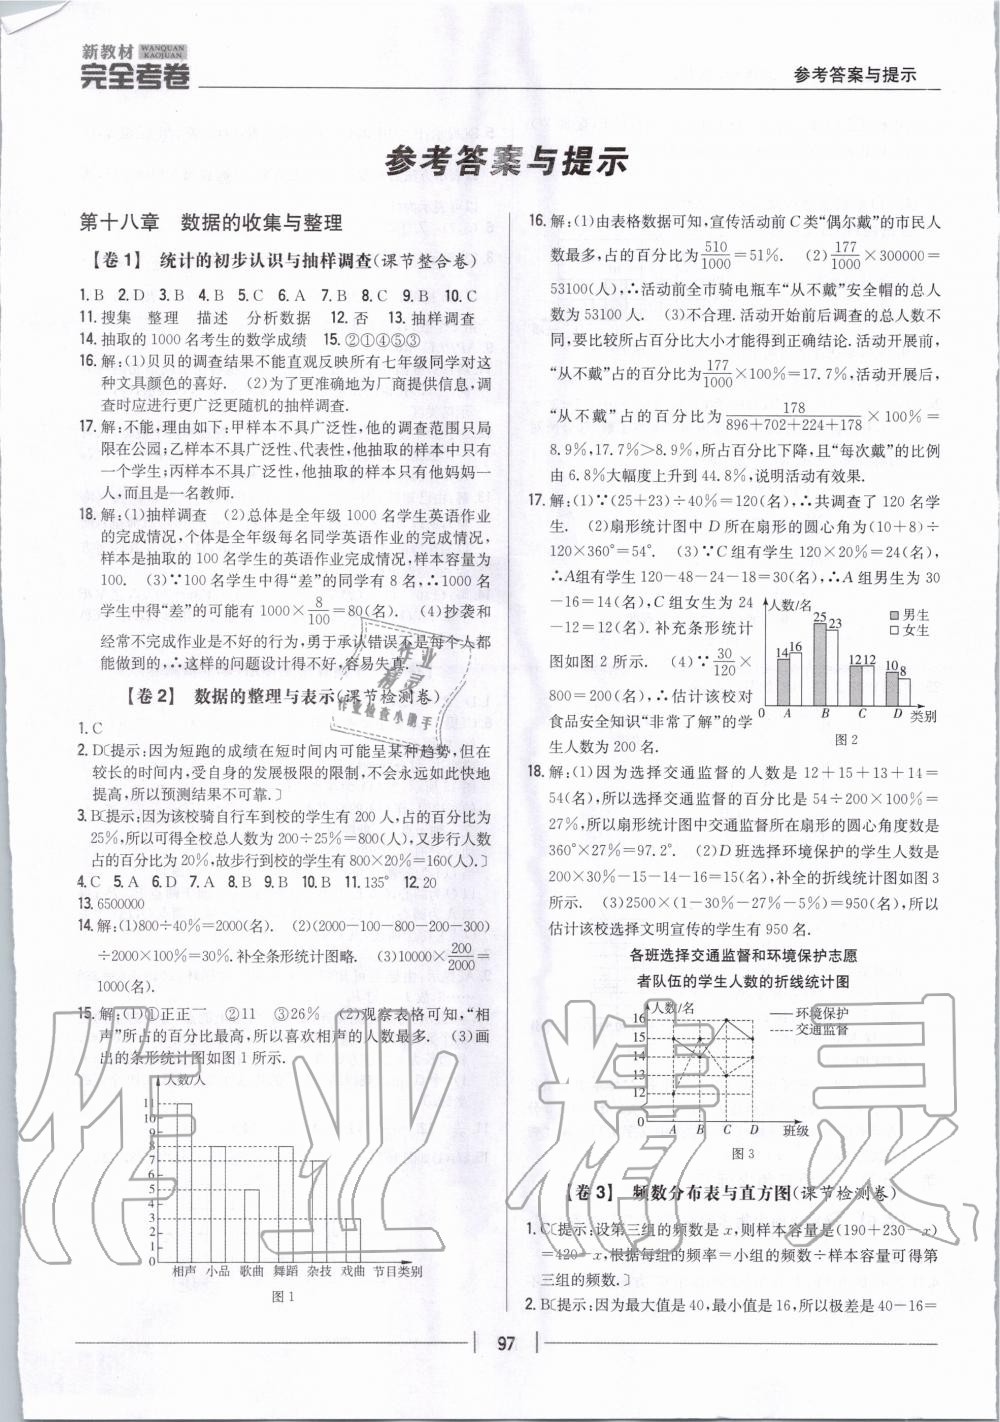 新教材 WANQUAN KAOJUAN
完全考卷
参考答案与提示
参考答案与提示
第十八章 数据的收集与整理
【卷1】 统计的初步认识与抽样调查(课节整合卷)
1. B 2. D 3. B 4. B 5. C 6. A 7. B 8. C 9. B 10. C
11. 搜集 整理 描述 分析数据 12. 否 13. 抽样调查
14. 抽取的1000名考生的数学成绩 15. ②①④⑤③
16. 解:(1)贝贝的调查结果不能直观反映所有七年级同学对这
种文具颜色的喜好. (2)为了更准确地为厂商提供信息,调
查时应进行更广泛更随机的抽样调查.
17. 解:不能,理由如下:甲样本不具广泛性,他的调查范围只局
限在公园;乙样本不具广泛性、代表性,他抽取的样本中只有
一个学生;丙样本不具广泛性,他抽取的样本只有他妈妈一
人,而且是一名教师.
18. 解:(1)抽样调查 (2)总体是全年级1000名学生英语作业
的完成情况,个体是全年级每名同学英语作业的完成情况,
样本是抽取的100名学生的英语作业完成情况,样本容量为
100. (3)∵100名学生中得“差”的同学有8名,∴1000名
学生中得“差”的可能有1000×8/100=80(名). (4)抄袭和
经常不完成作业是不好的行为,勇于承认错误不是每个人都
能做到的,∴这样的问题设计得不好,容易失真.
【卷2】 数据的整理与表示(课节检测卷)
1. C
2. D〔提示:因为短跑的成绩在短时间内可能呈某种趋势,但在
较长的时间内,受自身的发展极限的限制,不会永远如此快地
提高,所以预测结果不可靠.〕
3. B〔提示:因为该校骑自行车到校的学生有200人,占的百分比为
25%,所以可得全校总人数为200÷25%=800(人),又步行人数
占的百分比为20%,故步行到校的学生有800×20%=160(人).〕
4. C 5. A 6. D 7. A 8. B 9. B 10. B 11. 135° 12. 20
13. 6500000
14. 解:(1)800÷40%=2000(名). (2)(2000-100-800-200-300)
÷2000×100%=30%. 补全条形统计图略. (3)10000×200/2000=
1000(名).
15. 解:(1)①正正一 ②11 ③26% (2)观察表格可知,“相
声”所占的百分比最高,所以喜欢相声的人数最多. (3)画
出的条形统计图如图1所示.
人数/人
11
9
8
7
6
5
4
3
2
1
0
相声 小品 歌曲 舞蹈 杂技 戏曲 节目类别
图1
16. 解:(1)由表格数据可知,宣传活动前C类“偶尔戴”的市民人
数最多,占的百分比为510/1000=51%. (2)177/1000×300000=
53100(人),∴活动前全市骑电瓶车“从不戴”安全帽的总人
数为53100人. (3)不合理. 活动开始前后调查的总人数不
同,要比较所占百分比大小才能得到正确结论. 活动开展前,
“从不戴”占的百分比为177/1000×100%=17.7%,活动开展后,
“从不戴”占的百分比为178/(896+702+224+178)×100%=
8.9%,17.7%>8.9%,所占百分比下降,且“每次戴”的比例
由6.8%大幅度上升到44.8%,说明活动有效果.
17. 解:(1)∵(25+23)÷40%=120(名),∴共调查了120名学
生. (2)扇形统计图中D所在扇形的圆心角为(10+8)÷
120×360°=54°. (3)∵C组有学生120×20%=24(名),
∴A组有学生120-48-24-18=30(名),∴A组男生为30
-16=14(名),C组女生为24
-12=12(名). 补充条形统计
图如图2所示. (4)∵30/120×
800=200(名),∴估计该校对
食品安全知识“非常了解”的学
生人数为200名.
人数/名
男生
女生
14 16 25 23 12 12 10 8
0 A B C D 类别
图2
18. 解:(1)因为选择交通监督的人数是12+15+13+14=
54(名),所以选择交通监督的百分比是54÷200×100%=
27%,所以扇形统计图中交通监督所在扇形的圆心角度数是
360°×27%=97.2°. (2)D班选择环境保护的学生人数是
200×30%-15-14-16=15(名),补全的折线统计图如图3
所示. (3)2500×(1-30%-27%-5%)=950(名),所以
估计该校选择文明宣传的学生有950名.
各班选择交通监督和环境保护志愿
者队伍的学生人数的折线统计图
人数/名
环境保护
交通监督
16
15
14
13
12
0 A B C D 班级
图3
【卷3】 频数分布表与直方图(课节检测卷)
1. C〔提示:设第三组的频数是x,则样本容量是(190+230-x)
=420-x,根据每组的频率=小组的频数÷样本容量可得第
三组的频数.〕
2. B〔提示:因为最大值是40,最小值是16,所以极差是40-16=
97
作业精灵
作业
精灵
作业检查小助手